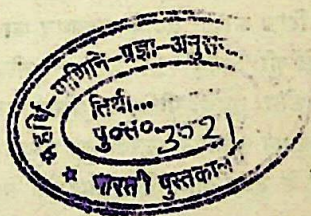 महर्षि-पाणिनि-प्रज्ञा-अनुस
तिथी...
पु०सं०
भारती पुस्तकाल